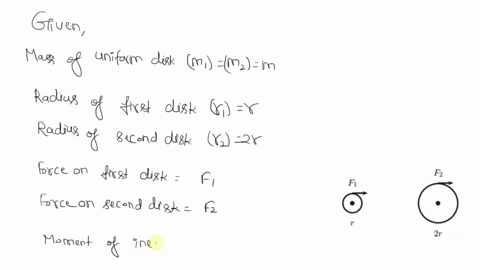 Given,
Mass of uniform disk (m₁)=(m₂)=m
Radius of first disk (r₁)=r
Radius of second disk (r₂)=2r
Force on first disk = F₁
Force on second disk = F₂
Moment of ine
F₁
r
F₂
2r